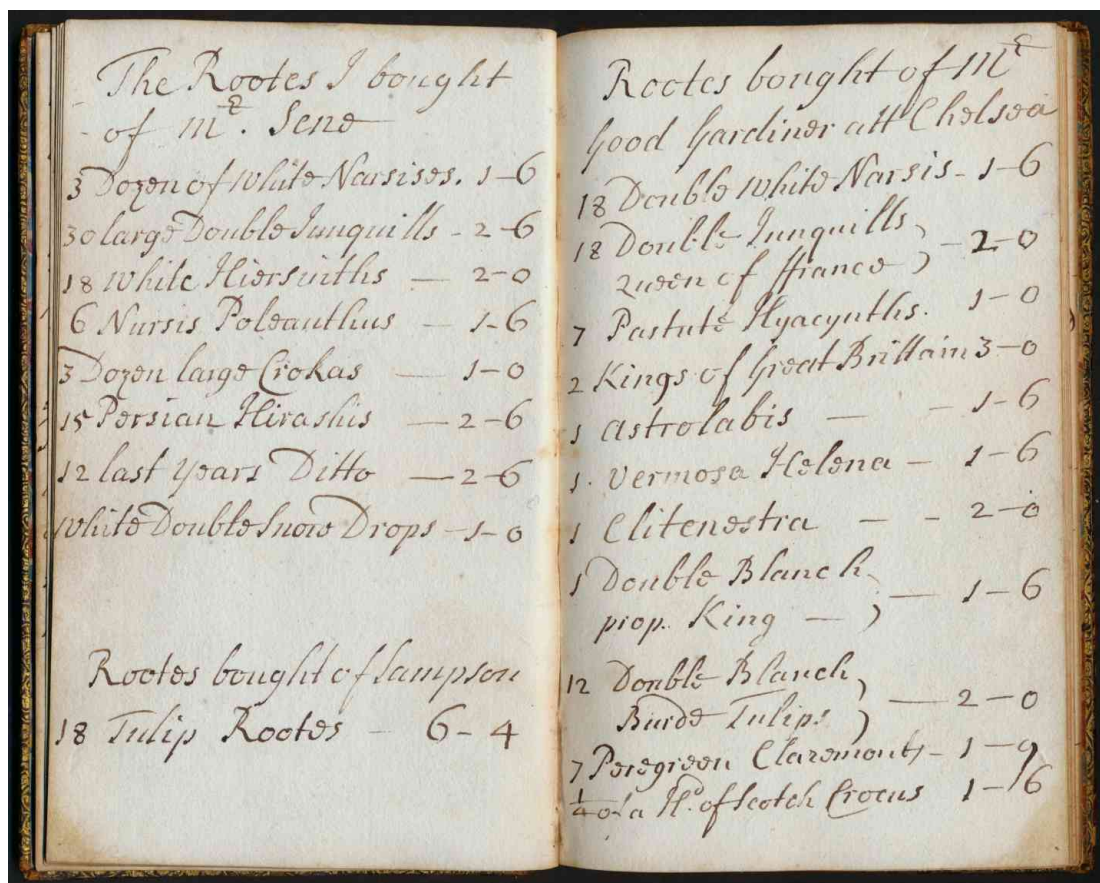 The Rootes I bought
of Mr. Sene
3 Dozen of White Narsises. 1-6
30 large Double Junquills - 2-6
18 White Hiersinths — 2-0
6 Narsis Poleanthus — 1-6
3 Dozen large Crokas — 1-0
15 Persian Hirashis — 2-6
12 last years Ditto — 2-6
White Double Snow Drops - 1-0
Rootes bought of Sampson
18 Tulip Rootes - 6-4
Rootes bought of Mr
Good Gardiner att Chelsea
18 Double White Narsis - 1-6
18 Double Junquills
Queen of ffrance ) - 2-0
7 Pastute Hyacynths. 1-0
2 Kings of Great Brittain 3-0
1 Astrolabis — - 1-6
1. Vermosa Helena - 1-6
1 Clitenestra - - 2-0
1 Double Blanch
prop. King — ) — 1-6
12 Double Blanch
Burde Tulips ) — 2-0
7 Peregreen Claremonts - 1-9
1/4 of a Hd. of Scotch Crocus 1-6